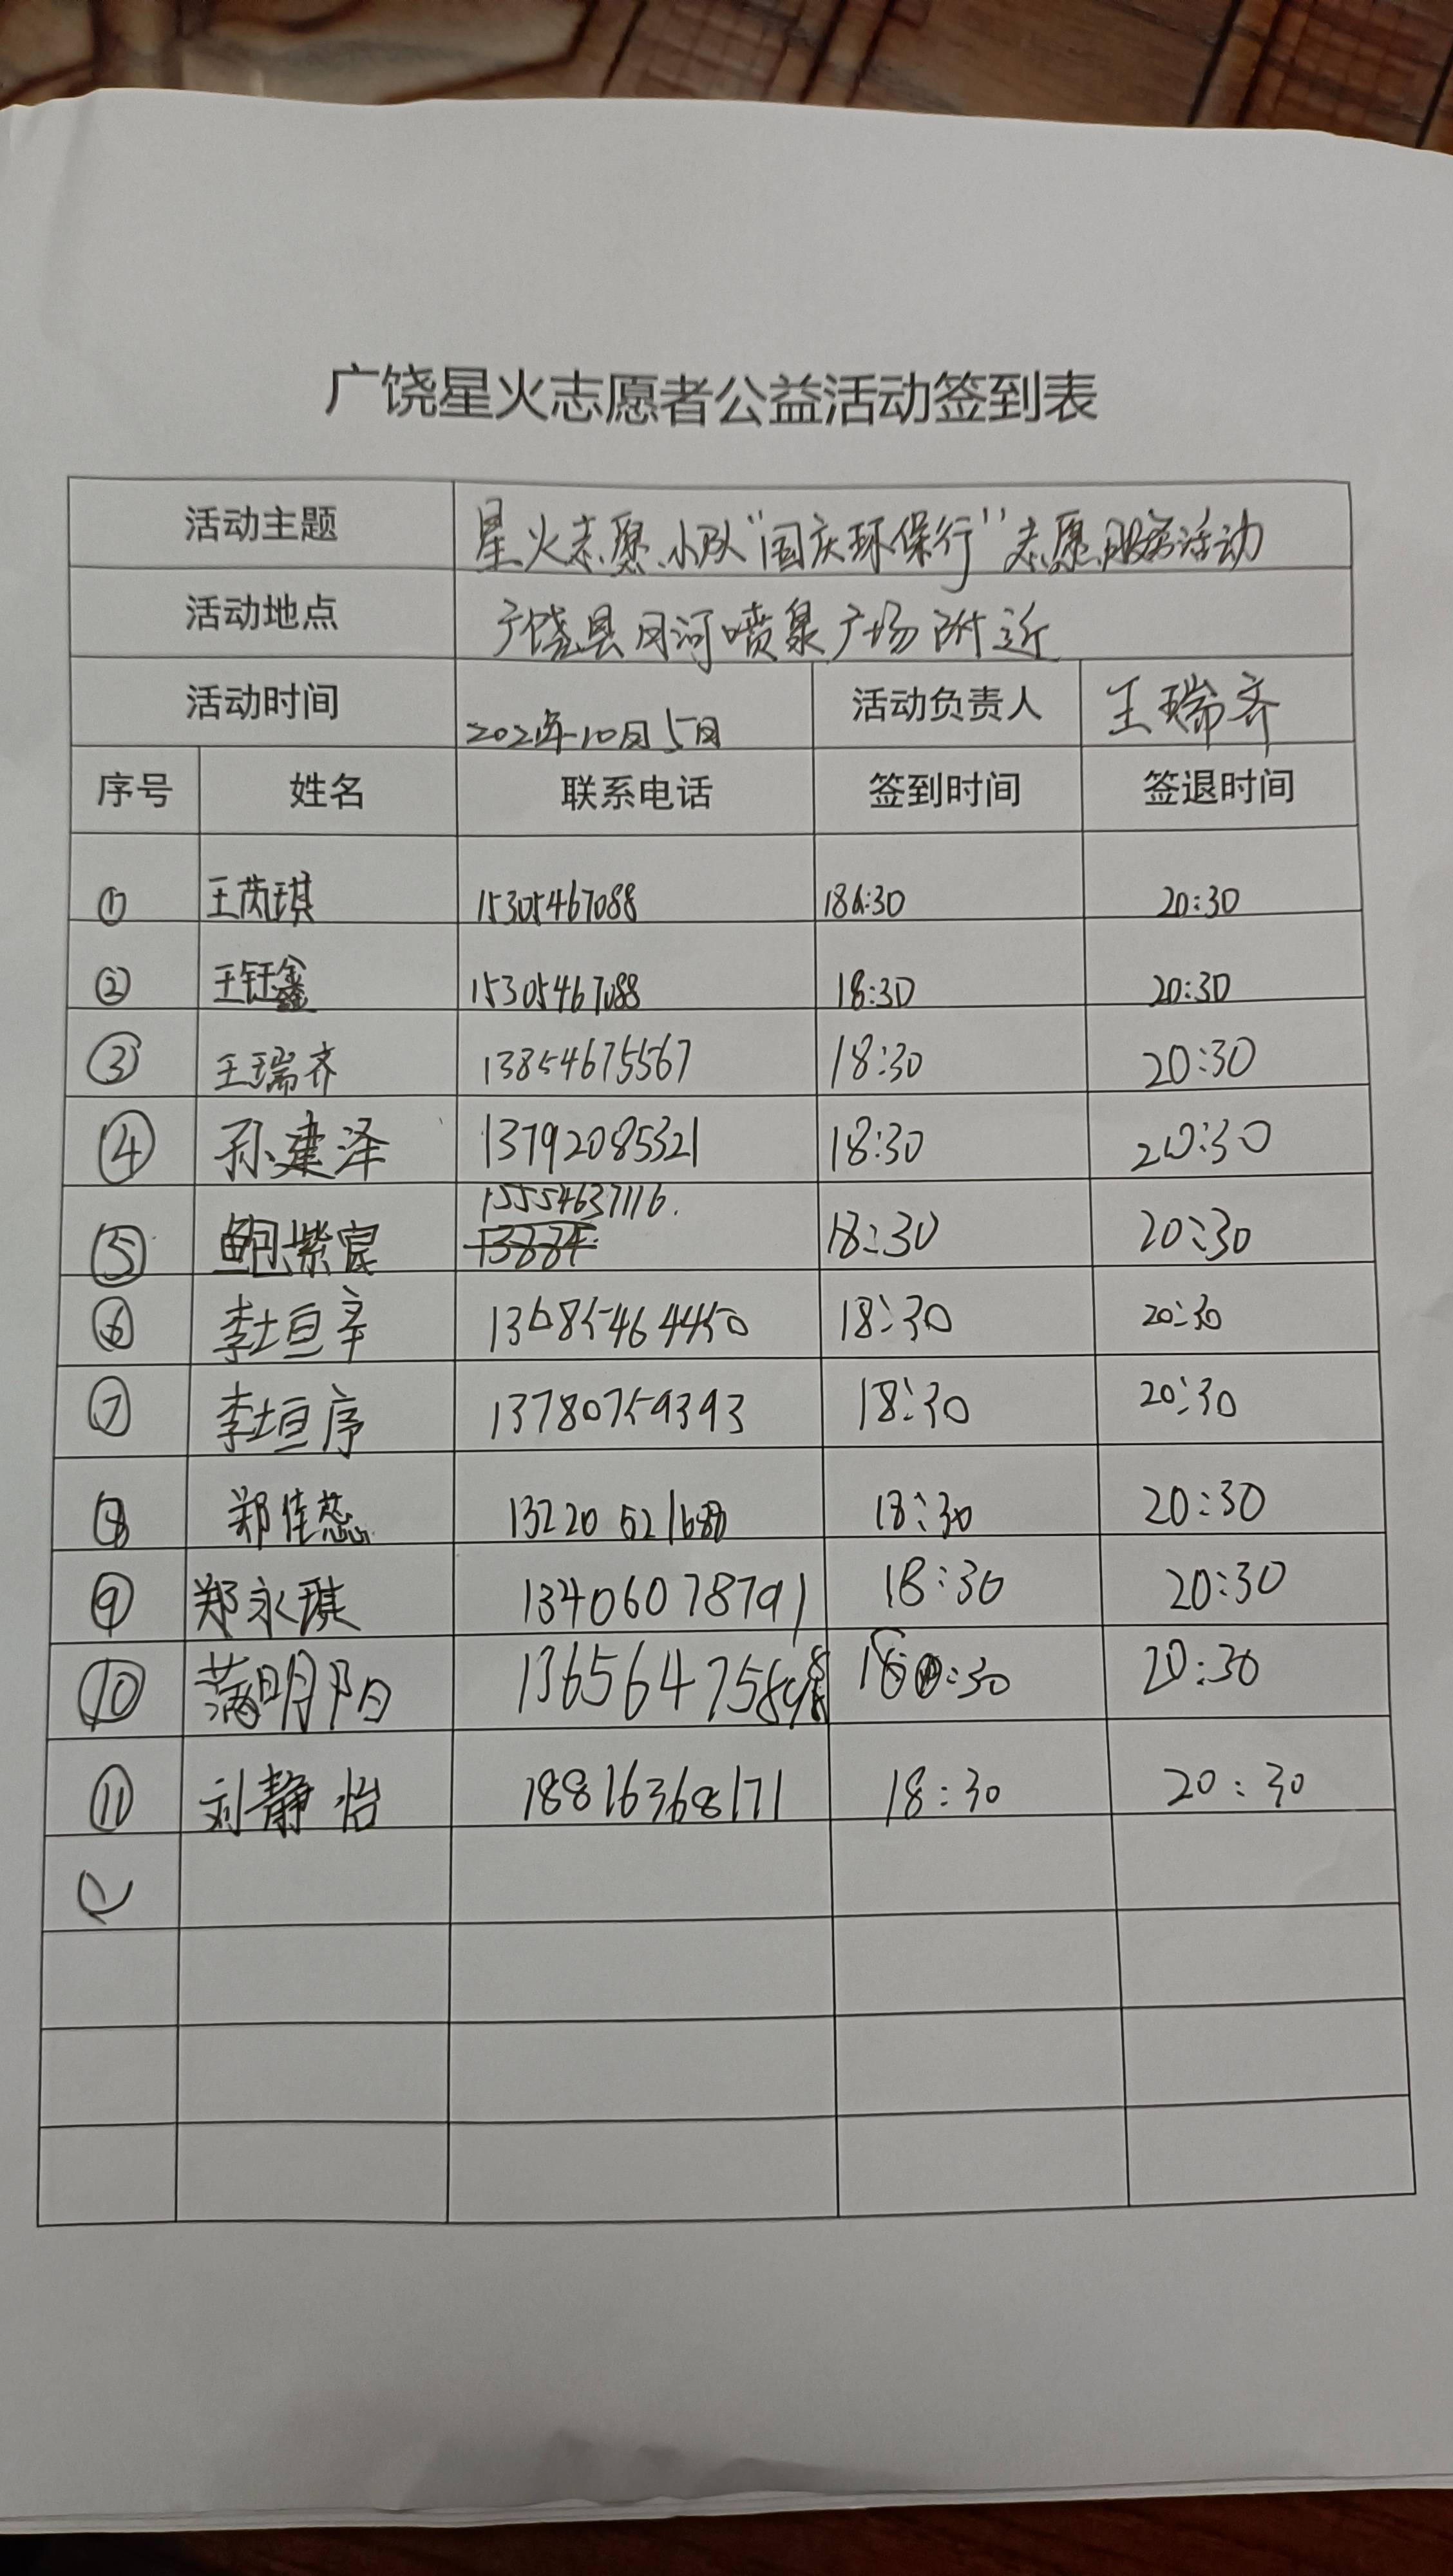 广饶星火志愿者公益活动签到表
活动主题 星火志愿小队“国庆环保行”志愿服务活动
活动地点 广饶县月河喷泉广场附近
活动时间 2021年10月5日 活动负责人 王瑞齐
序号 姓名 联系电话 签到时间 签退时间
① 王芮琪 15305467088 18:30 20:30
② 王钰鑫 15305467088 18:30 20:30
③ 王瑞齐 13854675567 18:30 20:30
④ 孙建泽 13792085321 18:30 20:30
⑤ 鲍紫宸 15554637116. 18:30 20:30
⑥ 李垣辛 13685464450 18:30 20:30
⑦ 李垣序 13780759393 18:30 20:30
⑧ 郑佳蕊 18:30 20:30
⑨ 郑永琪 13406078791 18:30 20:30
⑩ 满明阳 18:30 20:30
⑪ 刘静怡 18816368171 18:30 20:30